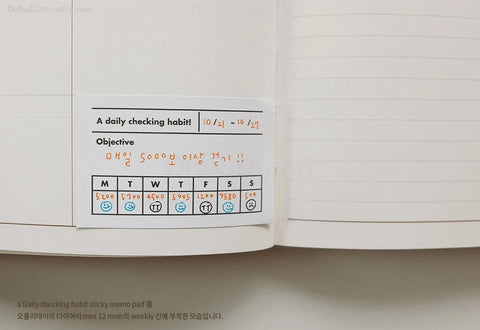 DubuDumo.etsy.com
A daily checking habit! 10/21 ~ 10/27
Objective
매일 5000보 이상 걷기!!
M T W T F S S
5200 5700 4500 5405 1200 9580 500
a Daily checking habit sticky memo pad 를
오롤리데이의 다이어리 mes 12 mois의 weekly 칸에 부착한 모습입니다.